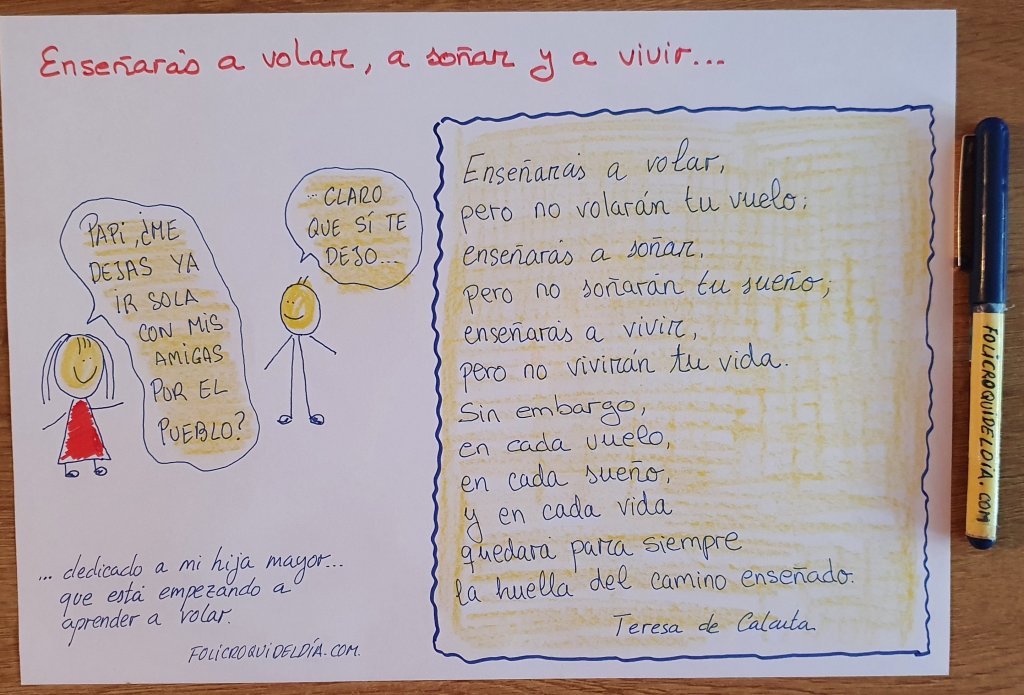 Enseñarás a volar, a soñar y a vivir...
PAPI, ¿ME
DEJAS YA
IR SOLA
CON MIS
AMIGAS
POR EL
PUEBLO?
...CLARO
QUE SÍ TE
DEJO...
Enseñarás a volar,
pero no volarán tu vuelo;
enseñarás a soñar,
pero no soñarán tu sueño;
enseñarás a vivir,
pero no vivirán tu vida.
Sin embargo,
en cada vuelo,
en cada sueño,
y en cada vida
quedará para siempre
la huella del camino enseñado.
Teresa de Calcuta
... dedicado a mi hija mayor...
que está empezando a
aprender a volar.
FOLICROQUIDELDÍA.COM.
FOLICROQUIDELDÍA.COM